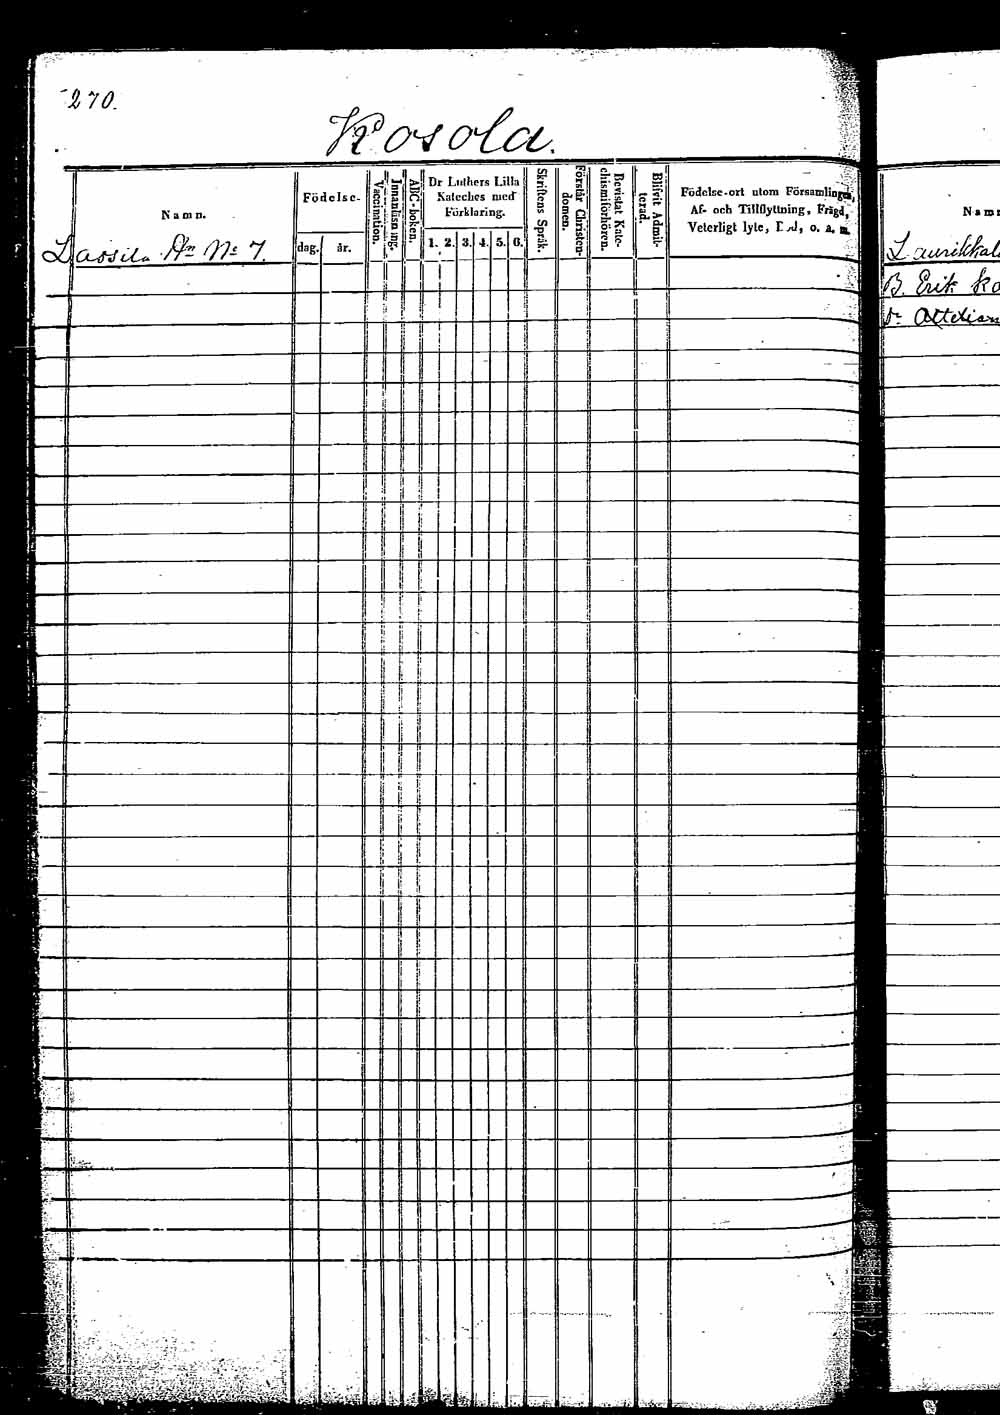 270.
Kosola.
Namn.
Födelse-
dag. år.
Vaccination.
Innanläsning.
ABC-boken.
Dr Luthers Lilla
Kateches med
Förklaring.
1. 2. 3. 4. 5. 6.
Skriftens Språk.
Förstår Christen-
domen.
Bevistat Kate-
chismiförhören.
Blifvit Admit-
terad.
Födelse-ort utom Församlingen,
Af- och Tillflyttning, Frägd,
Veterligt lyte, o. a. m.
Lassila No 7.
Nam
B. Erik